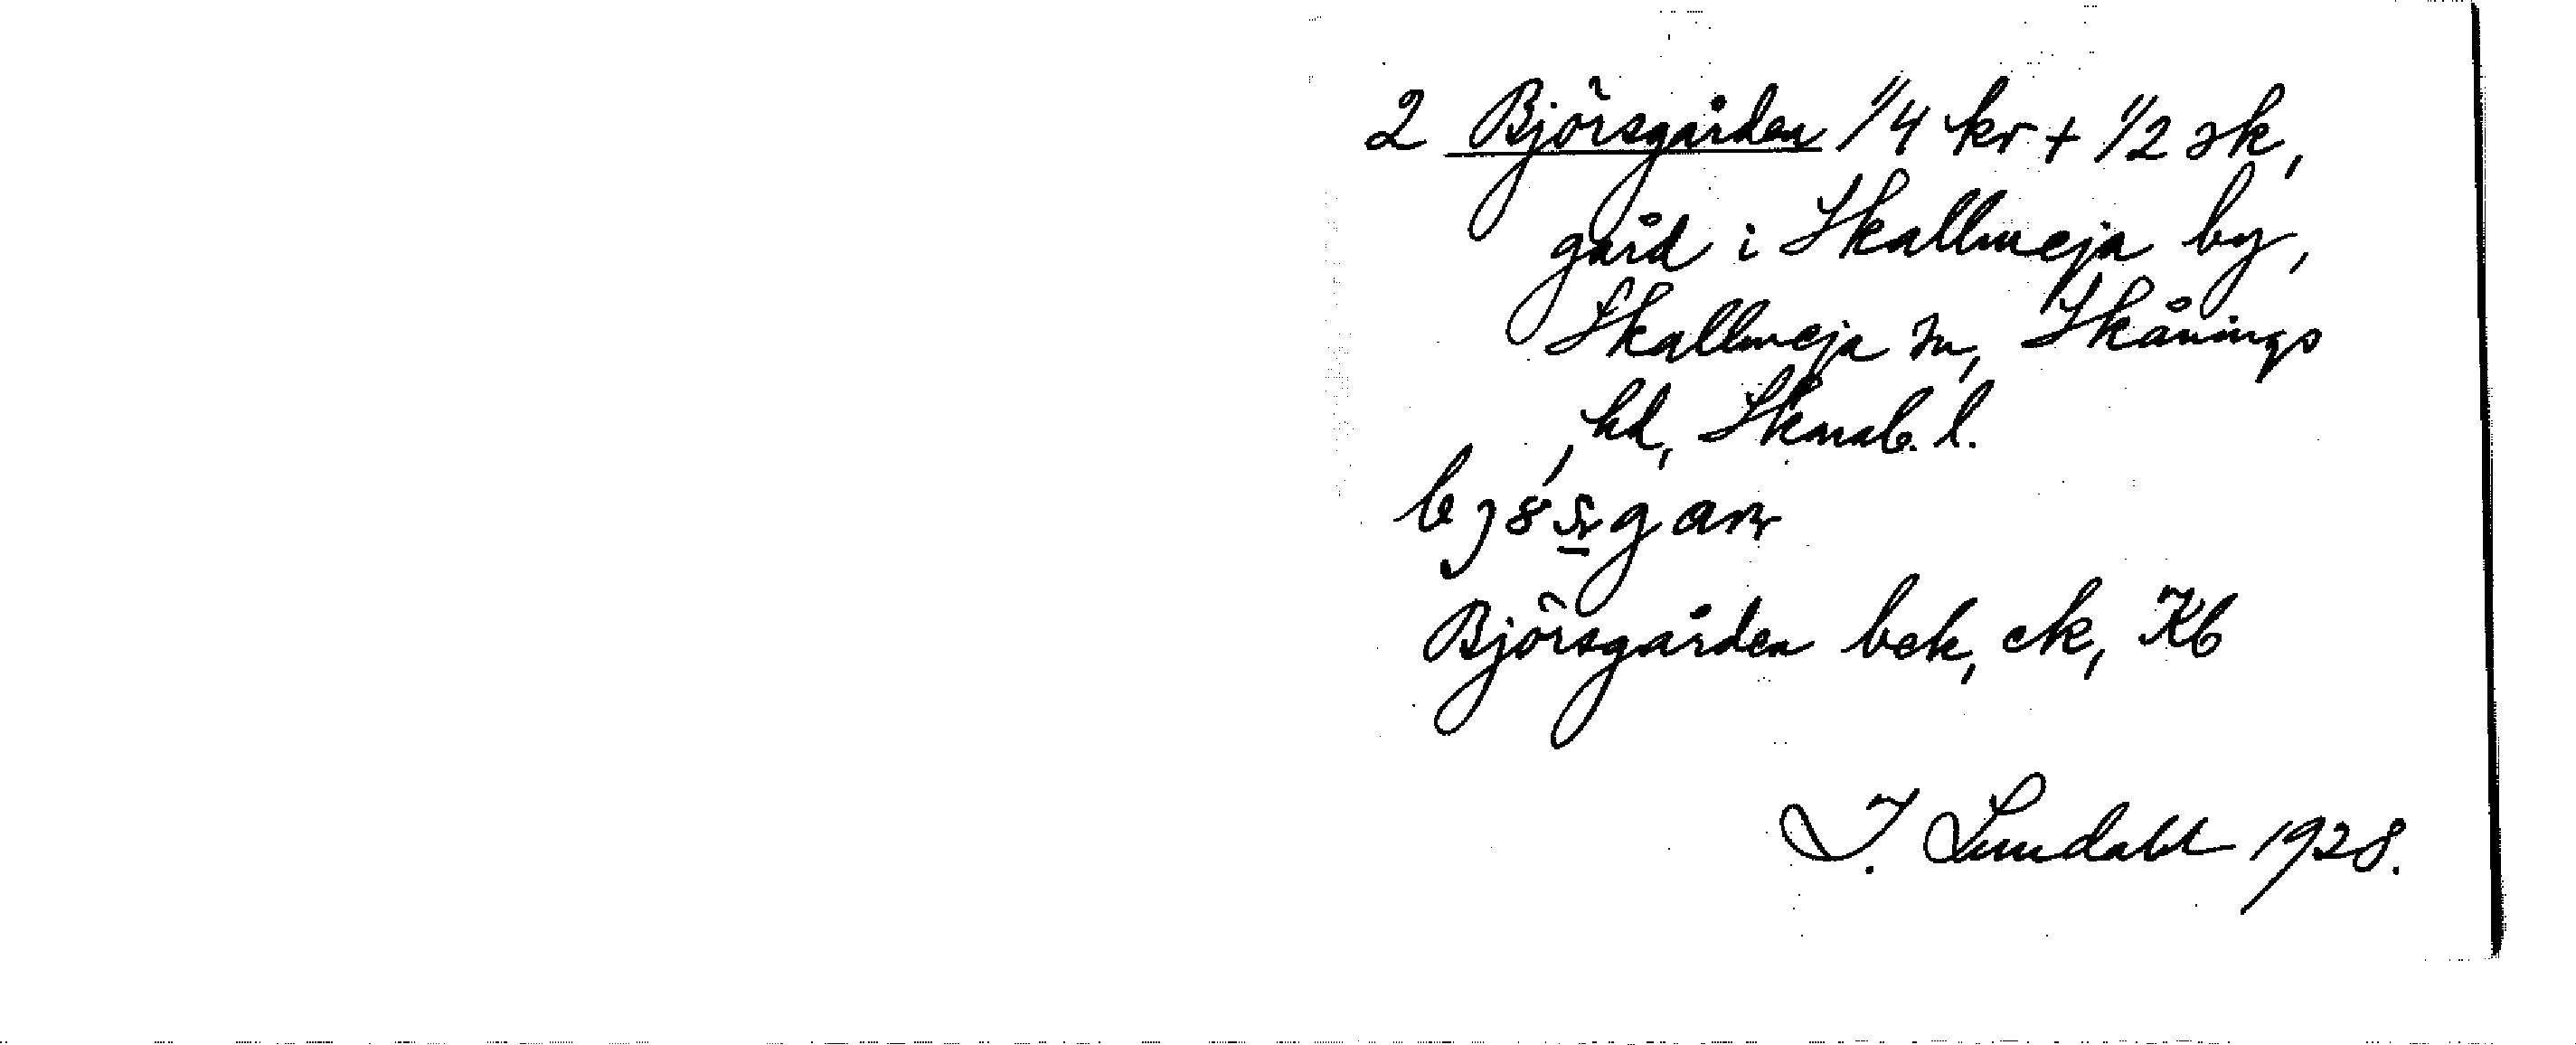 2 Björsgården 1/4 kr + 1/2 sk,
gård i Skallmeja by,
Skallmeja sn, Skånings
hd, Skarab. l.
Björsgården bek, ek, Kb
I. Lundahl 1928.